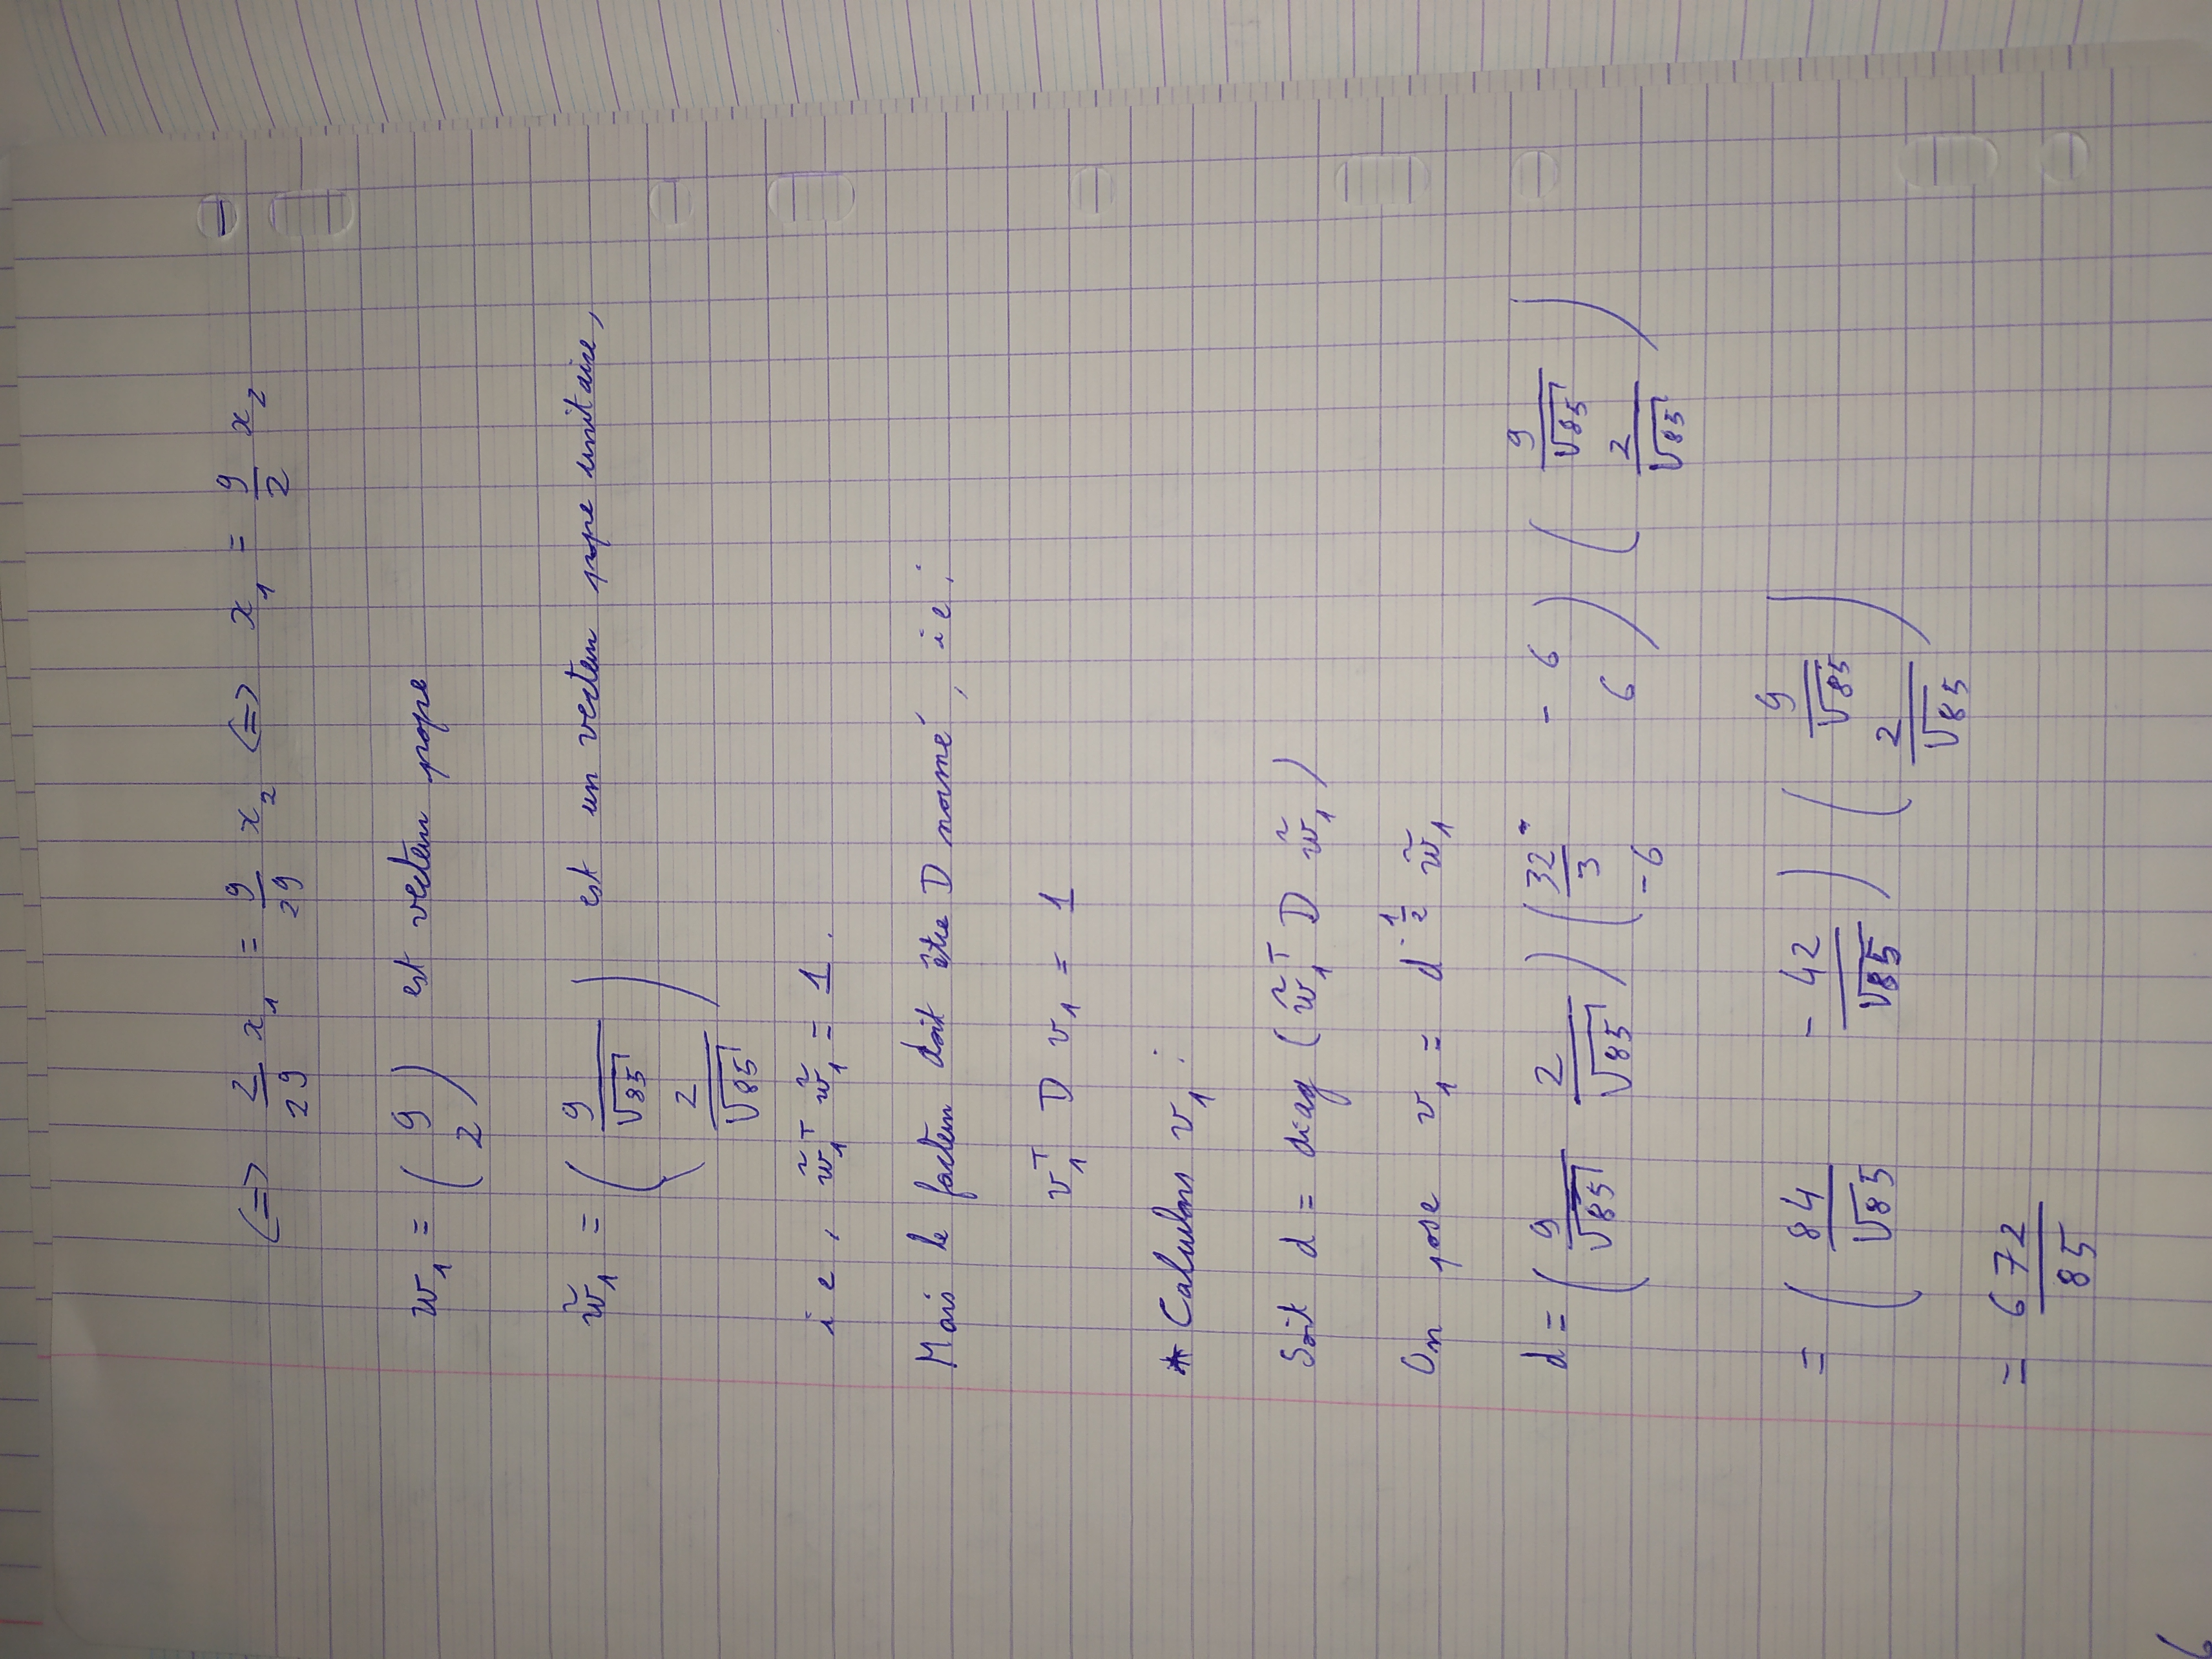 (=> 2/29 x_1 = 9/29 x_2 <=> x_1 = 9/2 x_2
w_1 = ( 9 2 ) est vecteur propre
w̃_1 = ( 9/√85 2/√85 ) est un vecteur propre unitaire,
ie, w̃_1^T w̃_1 = 1.
Mais le facteur doit être D normé, ie:
v_1^T D v_1 = 1
* Calculons v_1 :
Soit d = diag ( w̃_1^T D w̃_1 )
On pose v_1 = d^{-1/2} w̃_1
d = ( 9/√85 2/√85 ) ( 32/3 -6 -6 6 ) ( 9/√85 2/√85 )
= ( 84/√85 -42/√85 ) ( 9/√85 2/√85 )
= 672/85
6